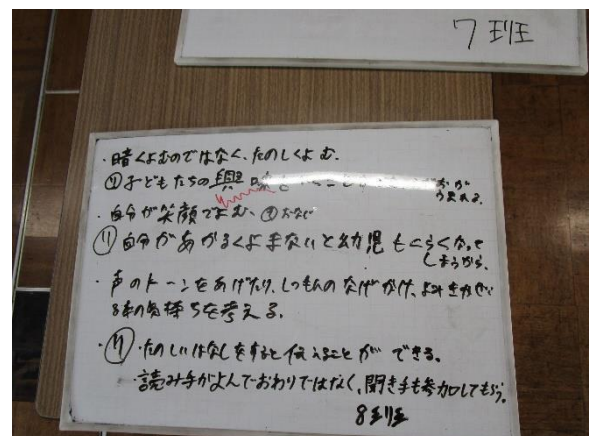 7班
・暗くよむのではなく、たのしくよむ。
㋷子どもたちの興味
うまれる。
・自分が笑顔でよむ、
㋷自分があかるくよまないと幼児もくらくなって
しまうから。
・声のトーンをあげたり、しつもんのなげかけ、よみきかせい
の気持ちを考える。
㋷・たのしいはなしをすると伝えることができる。
・読み手がよんでおわりではなく、聞き手も参加してもらう。
8班